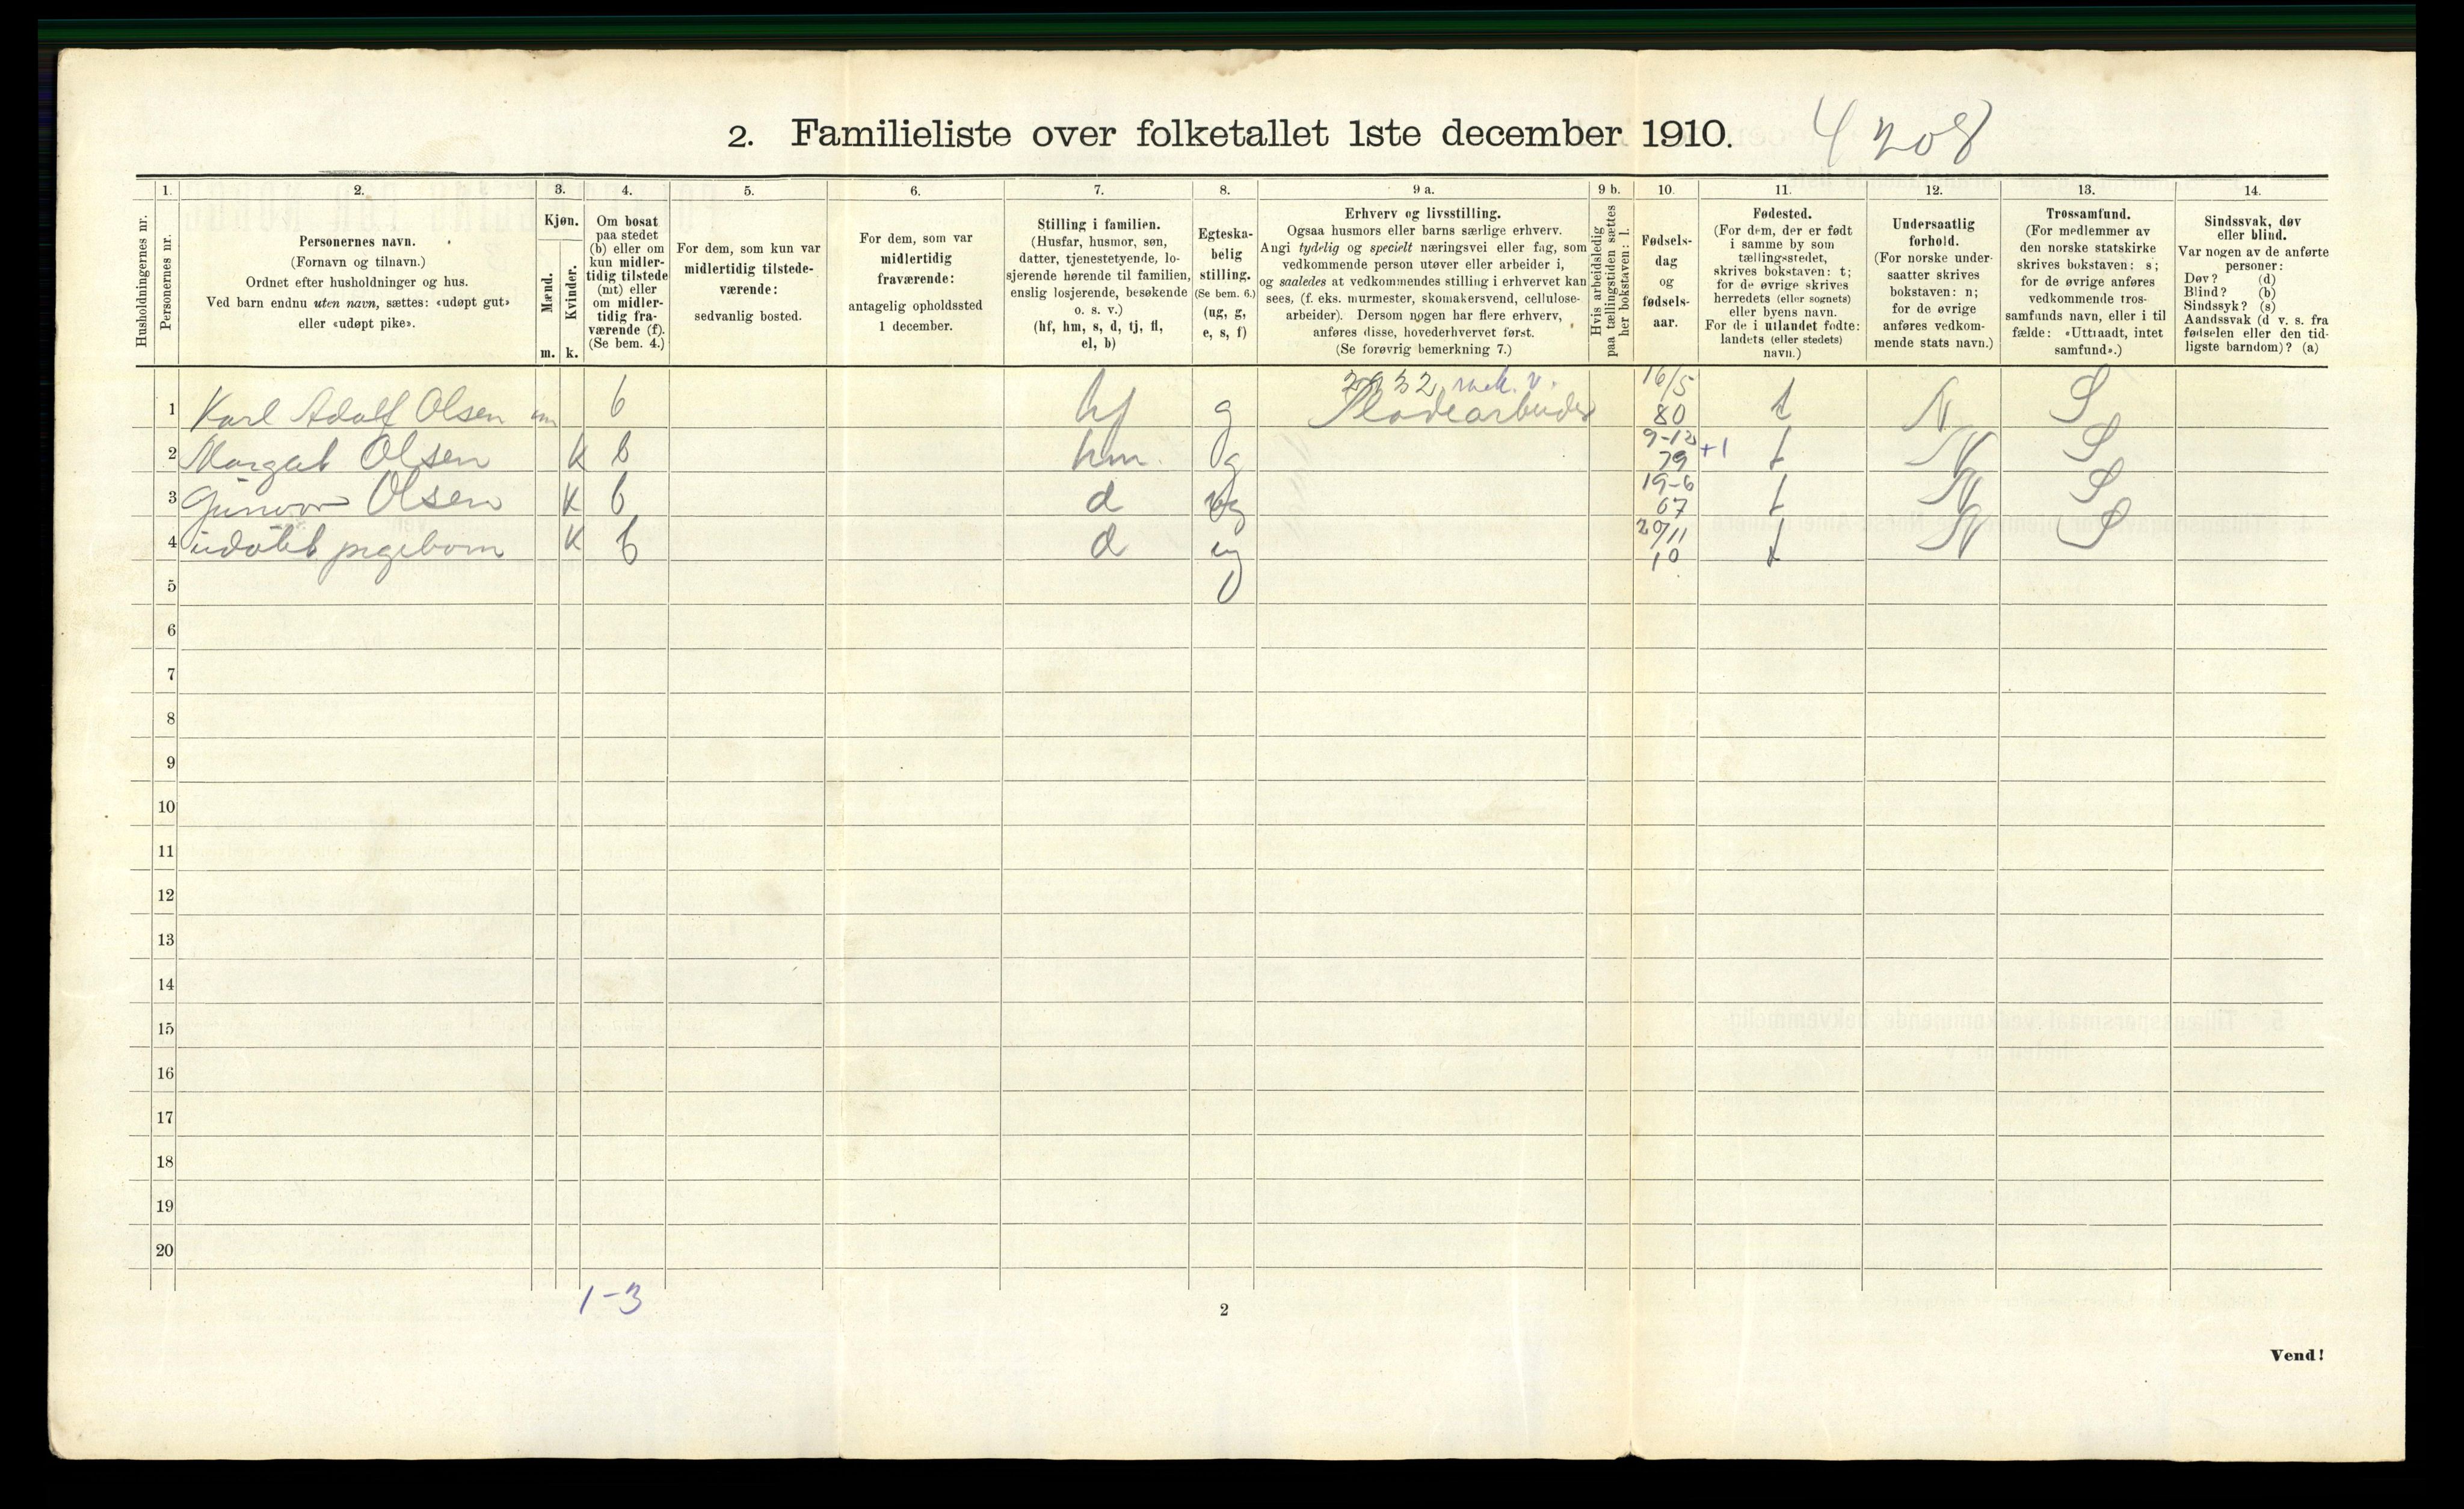 2. Familieliste over folketallet 1ste december 1910.
4208
1. 2. 3. 4. 5. 6. 7. 8. 9 a. 9 b. 10. 11. 12. 13. 14.
Husholdningernes nr.
Personernes nr.
Personernes navn.
(Fornavn og tilnavn.)
Ordnet efter husholdninger og hus.
Ved barn endnu uten navn, sættes: «udøpt gut»
eller «udøpt pike».
Kjøn.
Mænd.
Kvinder.
m. k.
Om bosat
paa stedet
(b) eller om
kun midler-
tidig tilstede
(mt) eller
om midler-
tidig fra-
værende (f).
(Se bem. 4.)
For dem, som kun var
midlertidig tilstede-
værende:
sedvanlig bosted.
For dem, som var
midlertidig
fraværende:
antagelig opholdssted
1 december.
Stilling i familien.
(Husfar, husmor, søn,
datter, tjenestetyende, lo-
sjerende hørende til familien,
enslig losjerende, besøkende
o. s. v.)
(hf, hm, s, d, tj, fl,
el, b)
Egteska-
belig
stilling.
(Se bem. 6.)
(ug, g,
e, s, f)
Erhverv og livsstilling.
Ogsaa husmors eller barns særlige erhverv.
Angi tydelig og specielt næringsvei eller fag, som
vedkommende person utøver eller arbeider i,
og saaledes at vedkommendes stilling i erhvervet kan
sees, (f. eks. murmester, skomakersvend, cellulose-
arbeider). Dersom nogen har flere erhverv,
anføres disse, hovederhvervet først.
(Se forøvrig bemerkning 7.)
Hvis arbeidsledig
paa tællingstiden sættes
her bokstaven: l.
Fødsels-
dag
og
fødsels-
aar.
Fødested.
(For dem, der er født
i samme by som
tællingsstedet,
skrives bokstaven: t;
for de øvrige skrives
herredets (eller sognets)
eller byens navn.
For de i utlandet fødte:
landets (eller stedets)
navn.)
Undersaatlig
forhold.
(For norske under-
saatter skrives
bokstaven: n;
for de øvrige
anføres vedkom-
mende stats navn.)
Trossamfund.
(For medlemmer av
den norske statskirke
skrives bokstaven: s;
for de øvrige anføres
vedkommende tros-
samfunds navn, eller i til
fælde: «Uttraadt, intet
samfund».)
Sindssvak, døv
eller blind.
Var nogen av de anførte
personer:
Døv? (d)
Blind? (b)
Sindssyk? (s)
Aandssvak (d. v. s. fra
fødselen eller den tid-
ligste barndom)? (a)
mek. v.
1 Karl Adolf Olsen m b hf g Pladearbeider 16/5 80 t N S
2 Margat Olsen K b hm. g 9-12 79 +1 t N S
3 Gunvor Olsen K b d ug 19-6 07 t N S
4 udøbt pigebarn K b d ug 20/11 10 t N S
5
6
7
8
9
10
11
12
13
14
15
16
17
18
19
20
1-3
2
Vend!